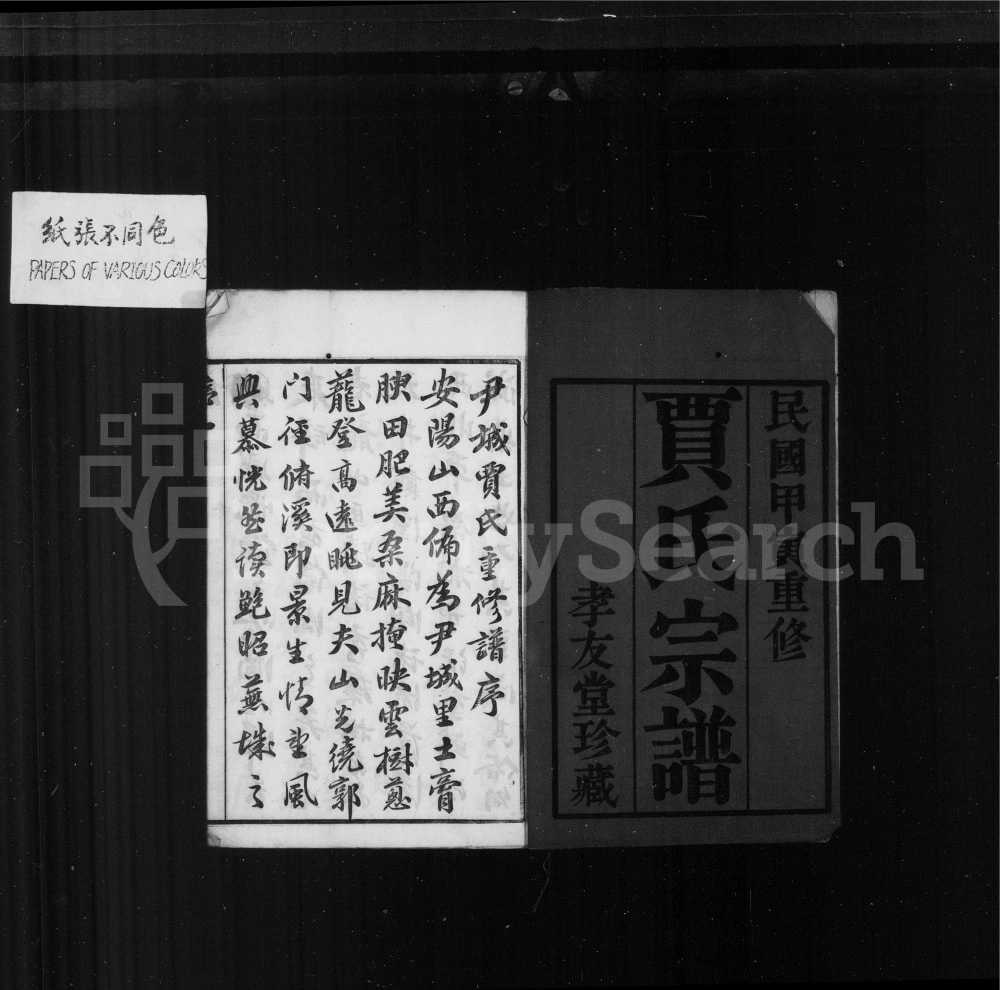 紙張不同色
PAPERS OF VARIOUS COLORS
民國甲寅重修
賈氏宗譜
孝友堂珍藏
尹城賈氏重修譜序
安陽山西偏為尹城里土膏
腴田肥美桑麻掩映雲樹蔥
蘢登高遠眺見夫山光繞郭
门徑俯溪即景生情望風
興慕恍若读鲍昭蕪城之
MySearch